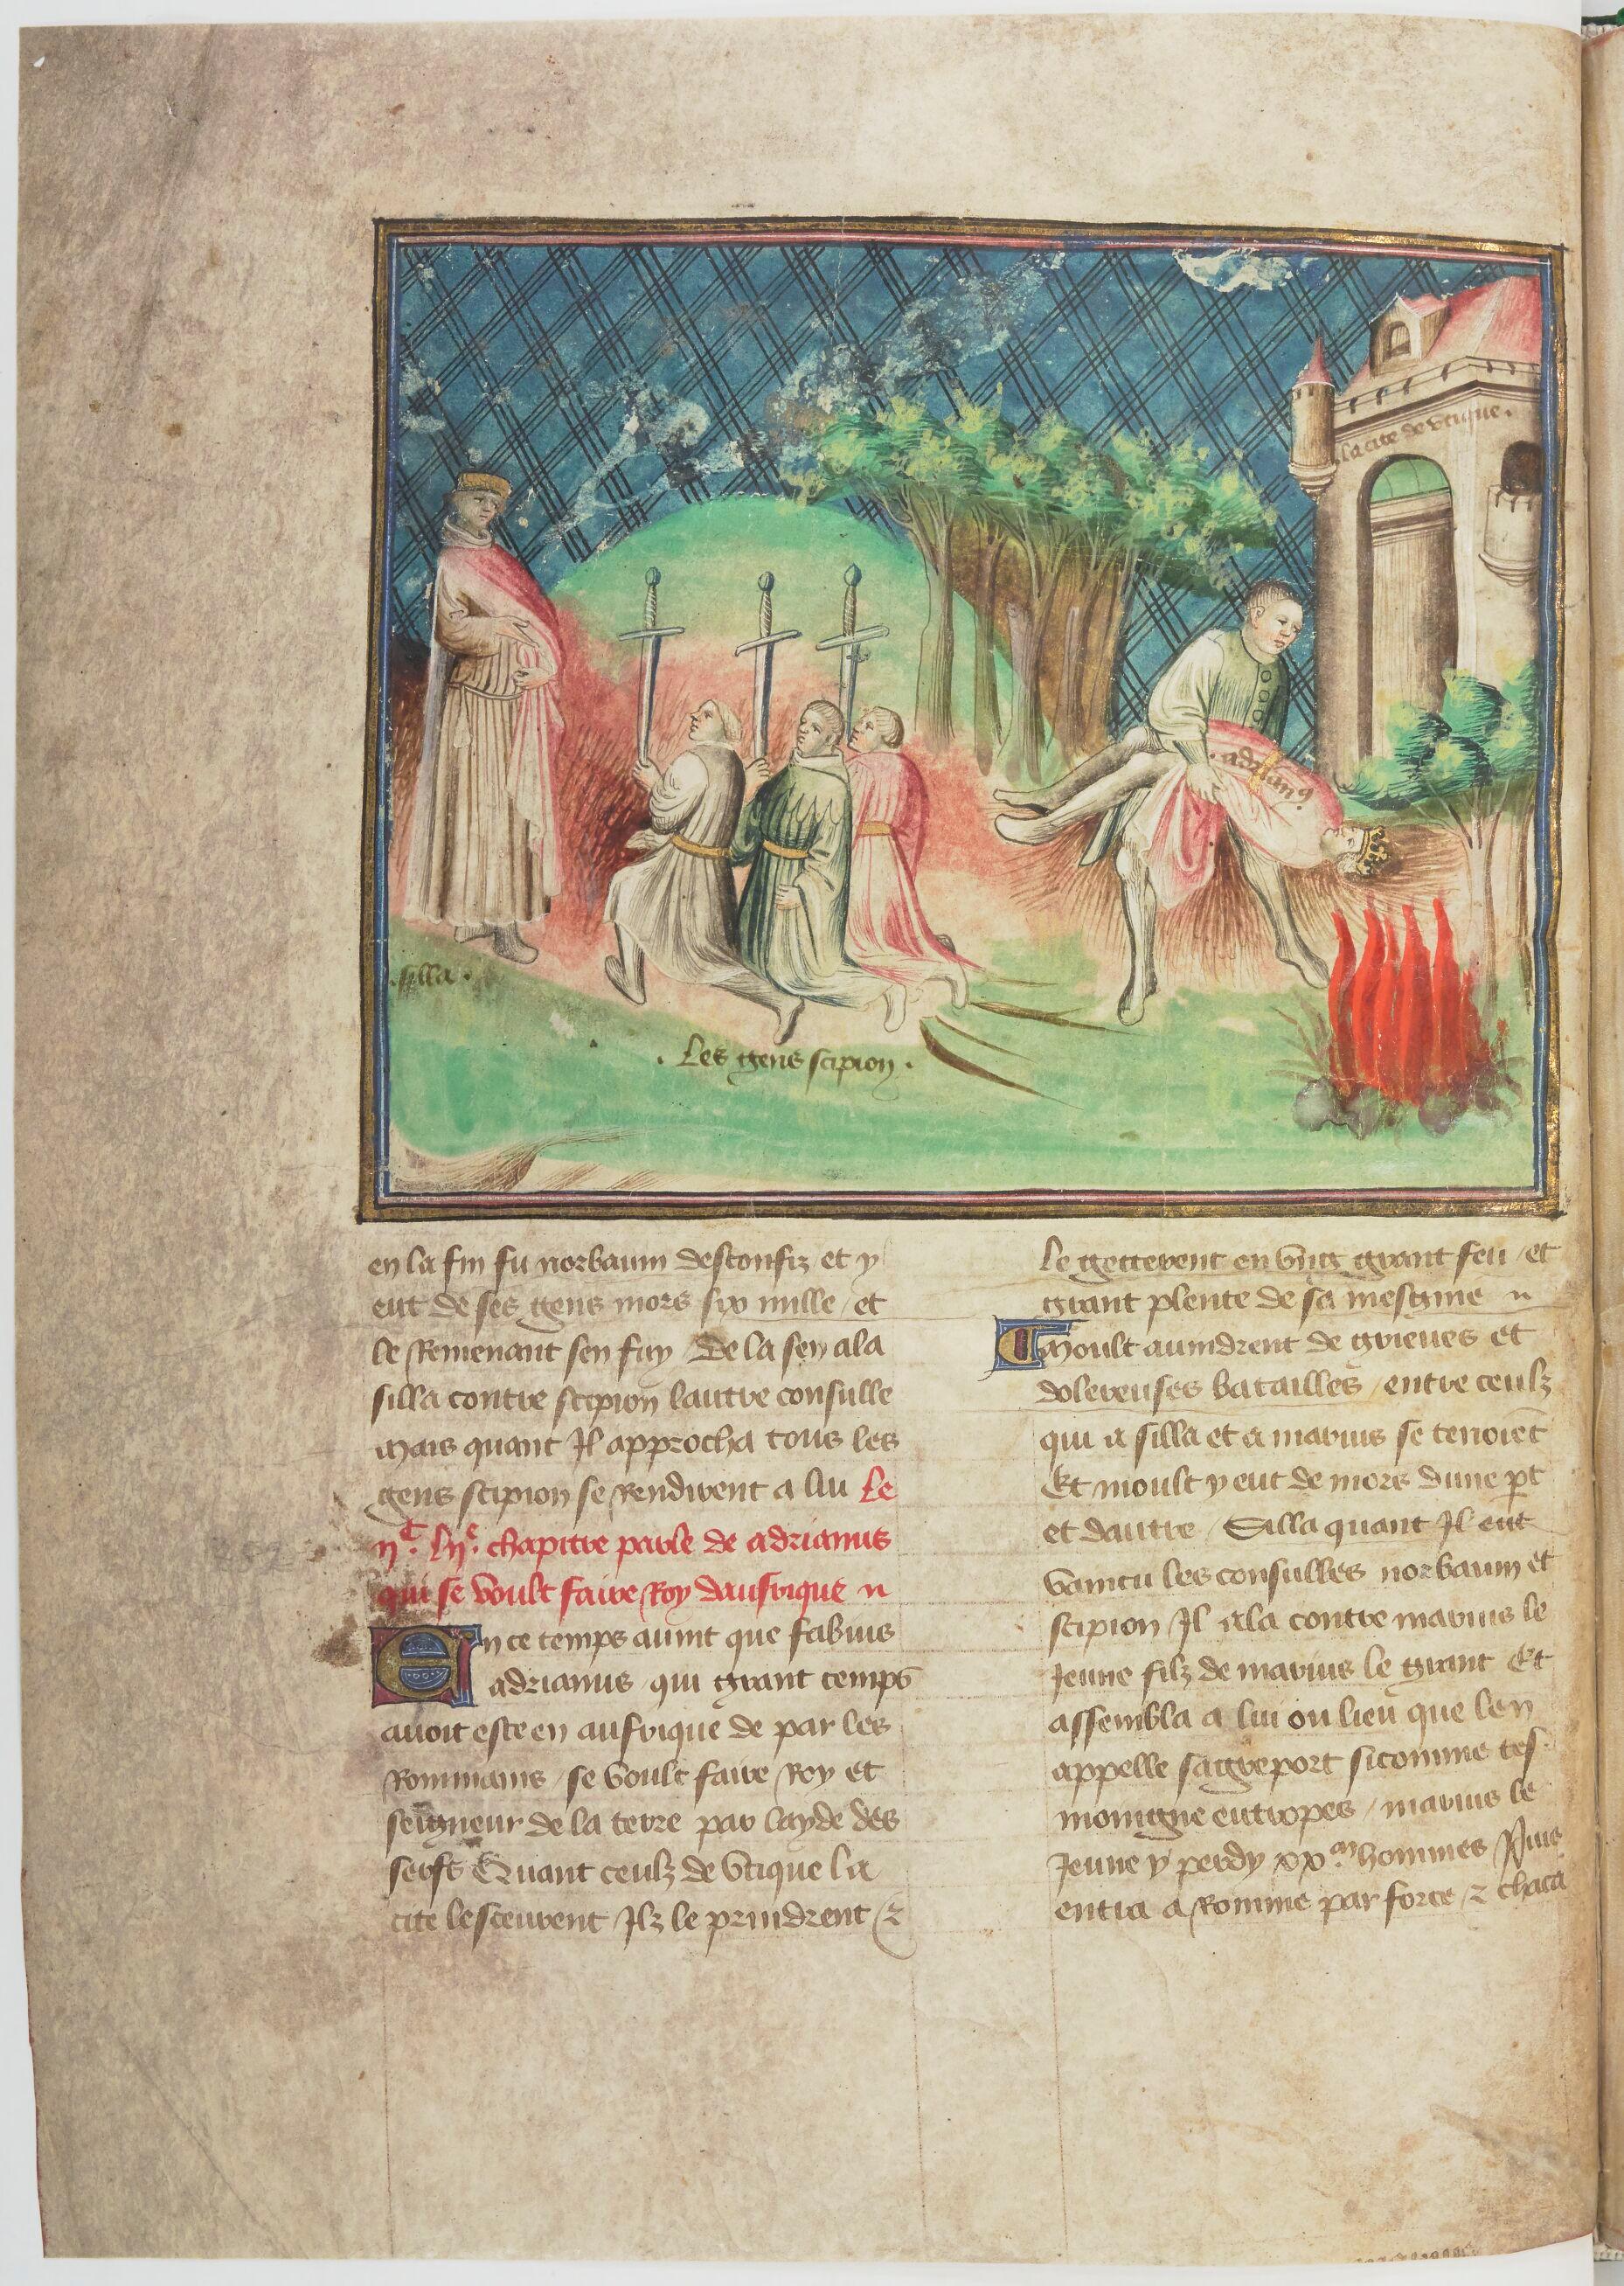 la cite de utique.
.adrianus.
.silla.
. Les gens scipion .
en la fin fu norbaum desconfiz et y
eut de ses gens mors six mille / et
le Remenant sen fuy De la sen ala
silla contre scipion lautre consulle
mais quant Il approcha tous les
gens scipion se rendirent a lui Le
ijᶜ. lijᵉ. chapitre parle de adrianus
qui se voult faire Roy daufrique
En ce temps auint que fabius
adrianus qui grant temps
auoit este en aufrique de par les
Rommains / se voult faire Roy et
seigneur de la terre par layde des
serfs Quant ceulz de Utique la
cite lesceurent Ilz le prindrent / ⁊
le getterent en vng grant feu / et
grant plente de sa mesgnie
Moult auindrent de grieues et
dolereuses batailles / entre ceulz
qui a silla et a marius se tenoiēt
Et moult y eut de mors dune pt
et dautre / Silla quant Il eut
vaincu les consulles norbaum et
scipion Il ala contre marius le
Jeune filz de marius le grant Et
assembla a lui ou lieu que len
appelle sagreport sicomme tes
moingne eutropes / marius le
Jeune y perdy xx.ᵐ hommes Puis
entra a Romme par force ⁊ chaca